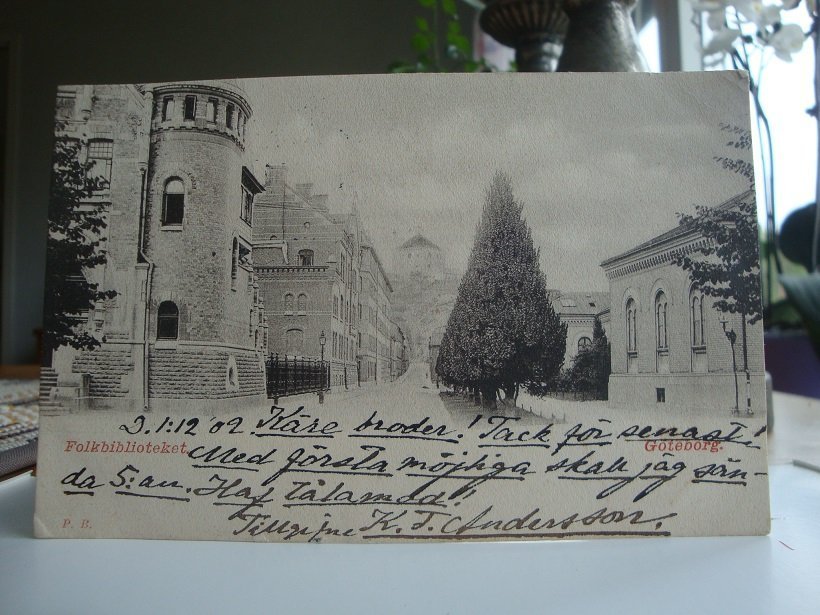 D. 1:12 '02 Käre broder! Tack för senast!
Folkbiblioteket. Göteborg.
Med första möjliga skall jag sän-
da 5:an. Haf tålamod!
P. B.
Tillgifne K. T. Andersson.